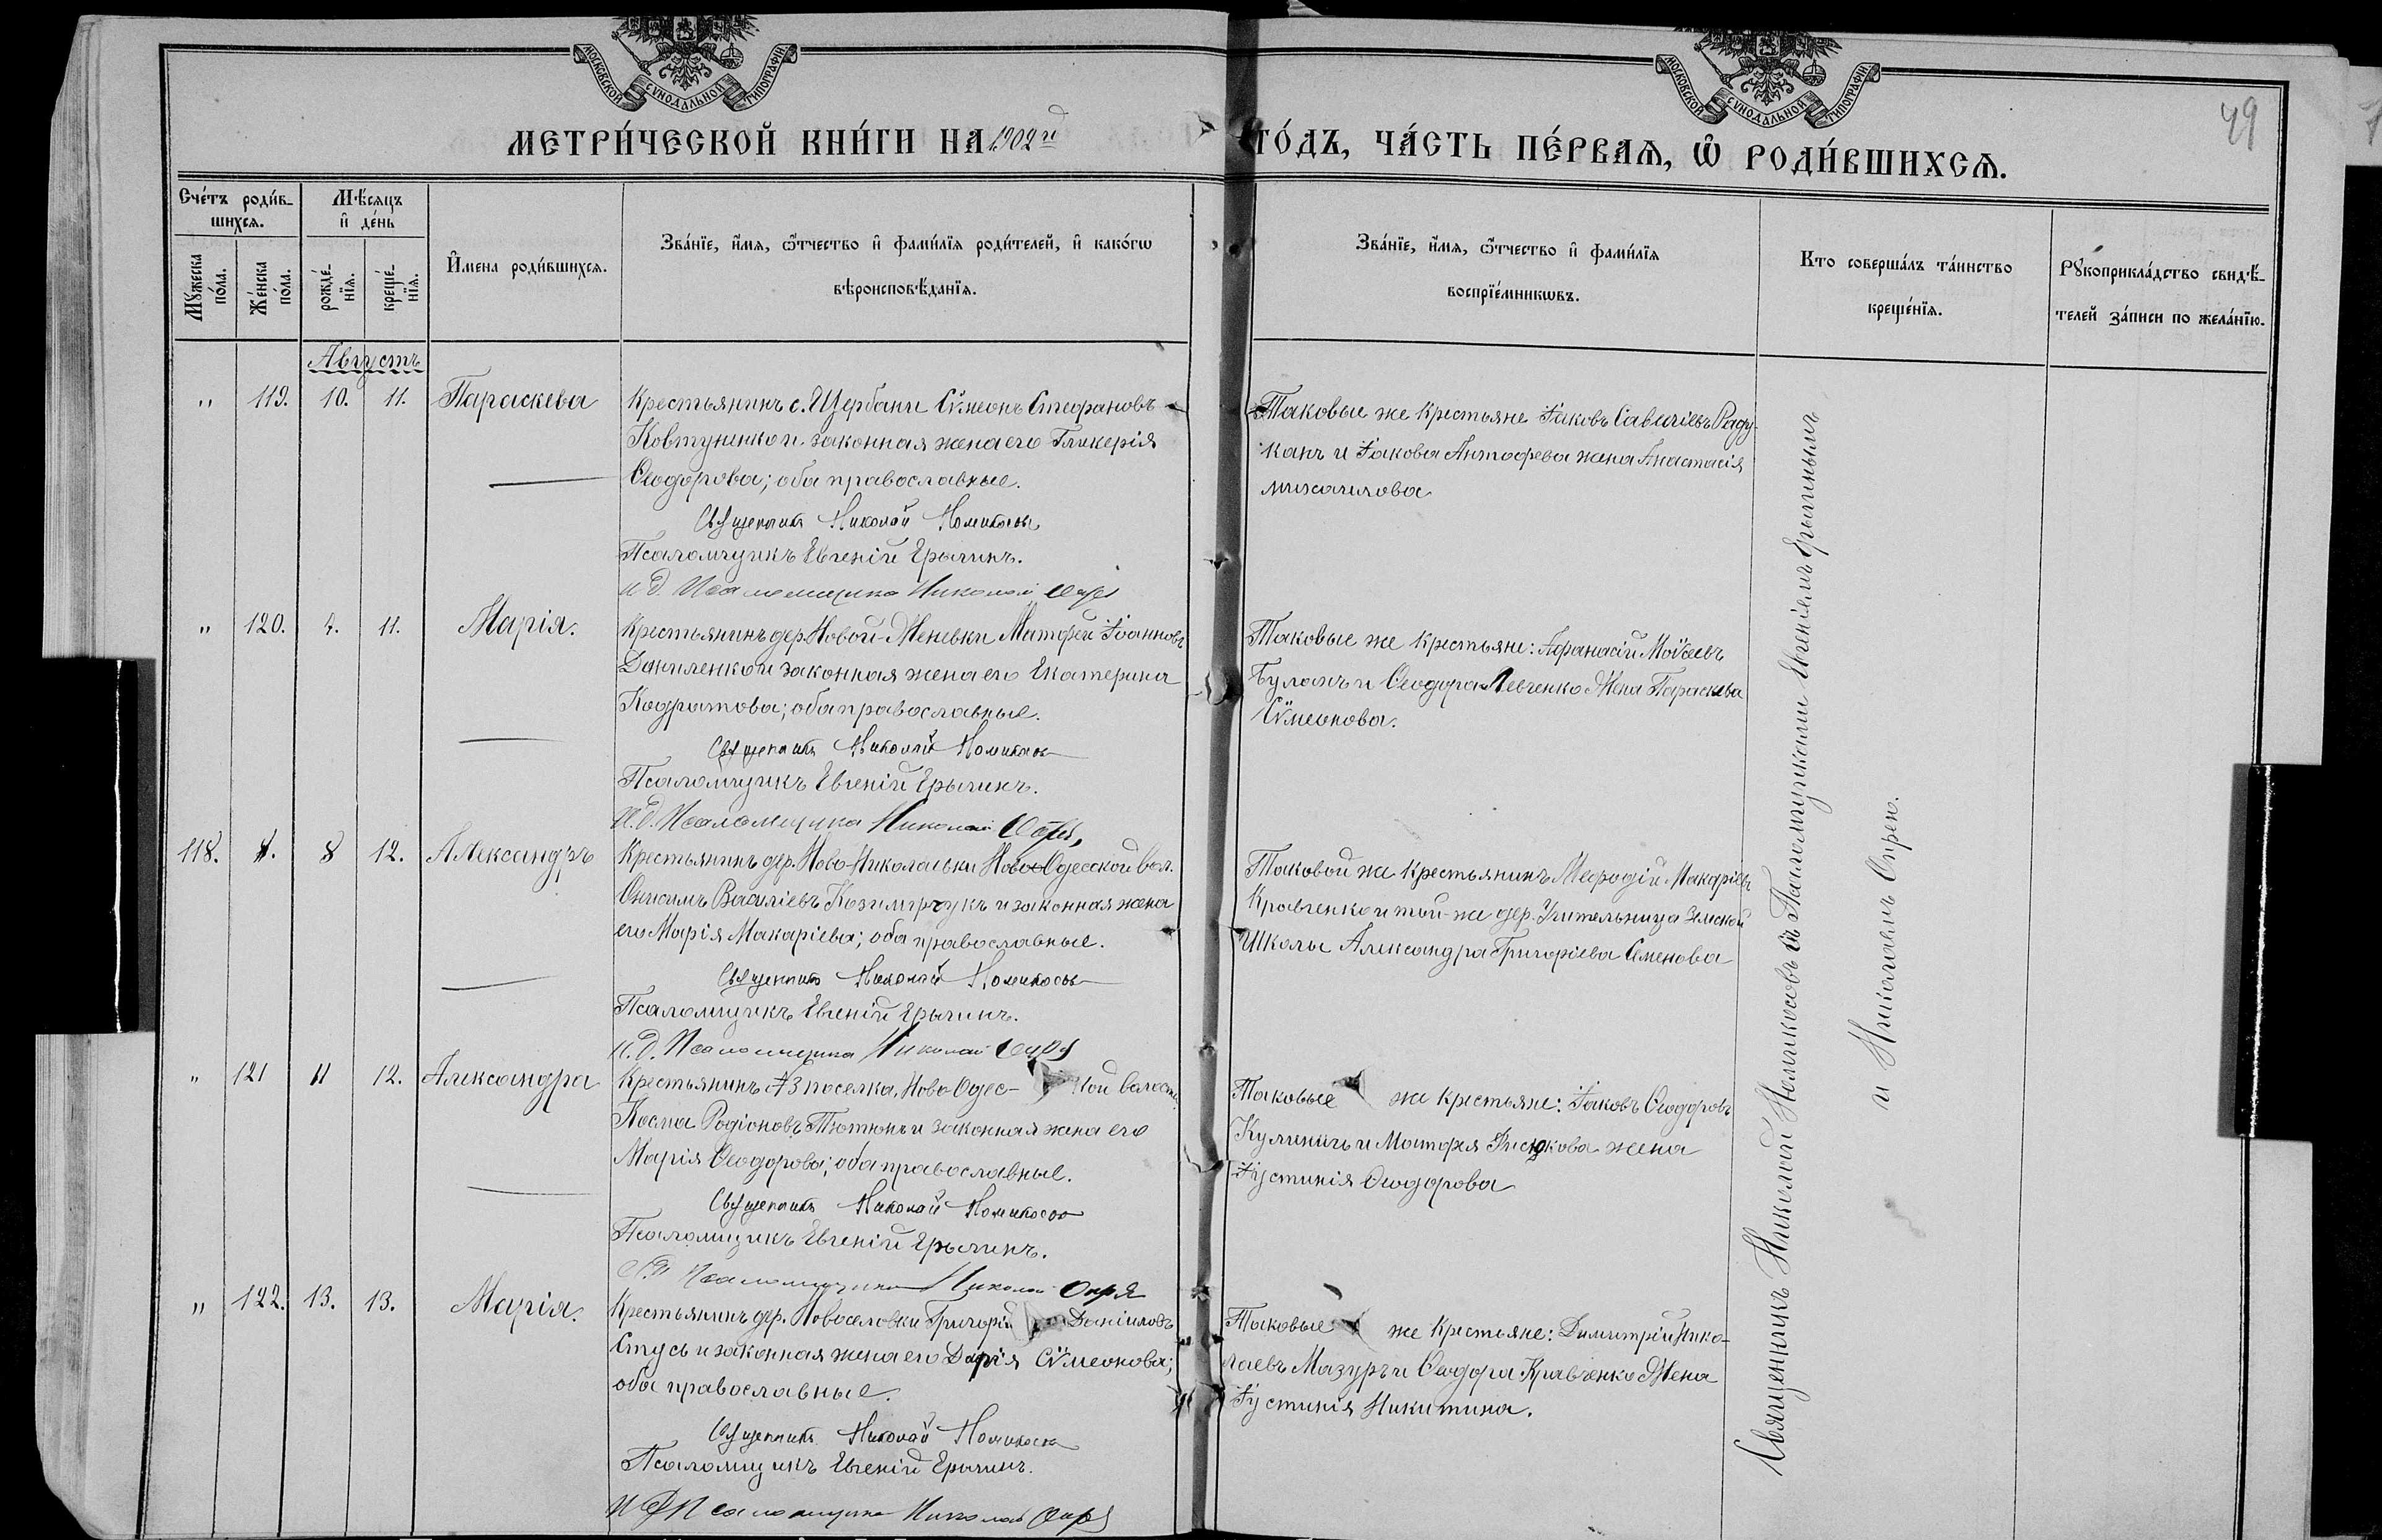 МОСКОВСКОЙ СѴНОДАЛЬНОЙ ТИПОГРАФІИ
МОСКОВСКОЙ СѴНОДАЛЬНОЙ ТИПОГРАФІИ
49
МЕТРИ́ЧЕСКОЙ КНИ́ГИ НА 1902й
ГО́ДЪ, ЧА́СТЬ ПЕ́РВАѦ, Ѽ РОДИ́ВШИХСѦ.
Счéтъ роди́в-
шихсѧ.
Мꙋ́жеска по́ла.
Жéнска по́ла.
Мѣ́сяцъ
и҆ де́нь
рождé-нїѧ.
крещé-нїѧ.
И҆мена роди́вшихсѧ.
Зва́нїе, и҆́мѧ, ѻ҆́тчество и҆ фами́лїѧ роди́телей, и҆ како́гѡ
вѣроисповѣ́данїѧ.
Зва́нїе, и҆́мѧ, ѻ҆́тчество и҆ фами́лїѧ
воспрїе́мникѡвъ.
Кто соверша́лъ та́инство
креще́нїѧ.
Рꙋкоприкла́дство свидѣ́-
телей за́писи по жела́нїю.
Августъ
" 119. 10. 11. Параскева
Крестьянинъ с. Щербани Сѷмеонъ Стефановъ
Ковтуненко и законная жена его Гликерія
Ѳеодорова; оба православные.
Священникъ Николай
Псаломщикъ Евгеній Ерыгинъ.
И. д. Псаломщика Николай Опря
Таковые же крестьяне Іаковъ Савеліевъ Раду-
канъ и Іакова Антофева жена Анастасія
Михаилова
" 120. 4. 11. Марія.
Крестьянинъ дер. Новой-Женевки Матфей Іоанновъ
Даниленко и законная жена его Екатерина
Кодратова; оба православные.
Священникъ Николай
Псаломщикъ Евгеній Ерыгинъ.
И. д. Псаломщика Николай Опря
Таковые же крестьяне: Афанасій Моѵсеевъ
Буланъ и Ѳеодора Левченко жена Параскева
Сѷмеонова.
118. 8 12. Александръ
Крестьянинъ дер. Ново-Николаевки Ново-Одесской вол.
Онисимъ Василіевъ Козимірчукъ и законная жена
его Марія Макаріева; оба православные.
Священникъ Николай
Псаломщикъ Евгеній Ерыгинъ.
И. д. Псаломщика Николай Опря
Таковой же крестьянинъ Меѳодій Макаріевъ
Кравченко и той-же дер. Учительница Земской
Школы Александра Григоріева Семенова
" 121 11 12. Александра
Крестьянинъ поселка, Ново Одес- кой волости
Косма Родіоновъ Тютюнъ и законная жена его
Марія Ѳеодорова; оба православные.
Священникъ Николай
Псаломщикъ Евгеній Ерыгинъ.
Псаломщика Николай Опря
Таковые же крестьяне: Іаковъ Ѳеодоровъ
и Матфея жена
Іустинія Ѳеодорова
" 122. 13. 13. Марія.
Крестьянинъ дер. Новоселовки Григорій Даніиловъ
Стусь и законная жена его Дарія Сѷмеонова;
оба православные.
Священникъ Николай
Псаломщикъ Евгеній Ерыгинъ.
И. Д. Псаломщика Николай Опря
Таковые же крестьяне: Димитрій Нико-
лаевъ Мазуръ и Ѳеодора Кравченко жена
Іустинія Никитина.
Священникъ Николай съ Псаломщиками Евгеніемъ Ерыгинымъ
и Николаемъ Опрею.